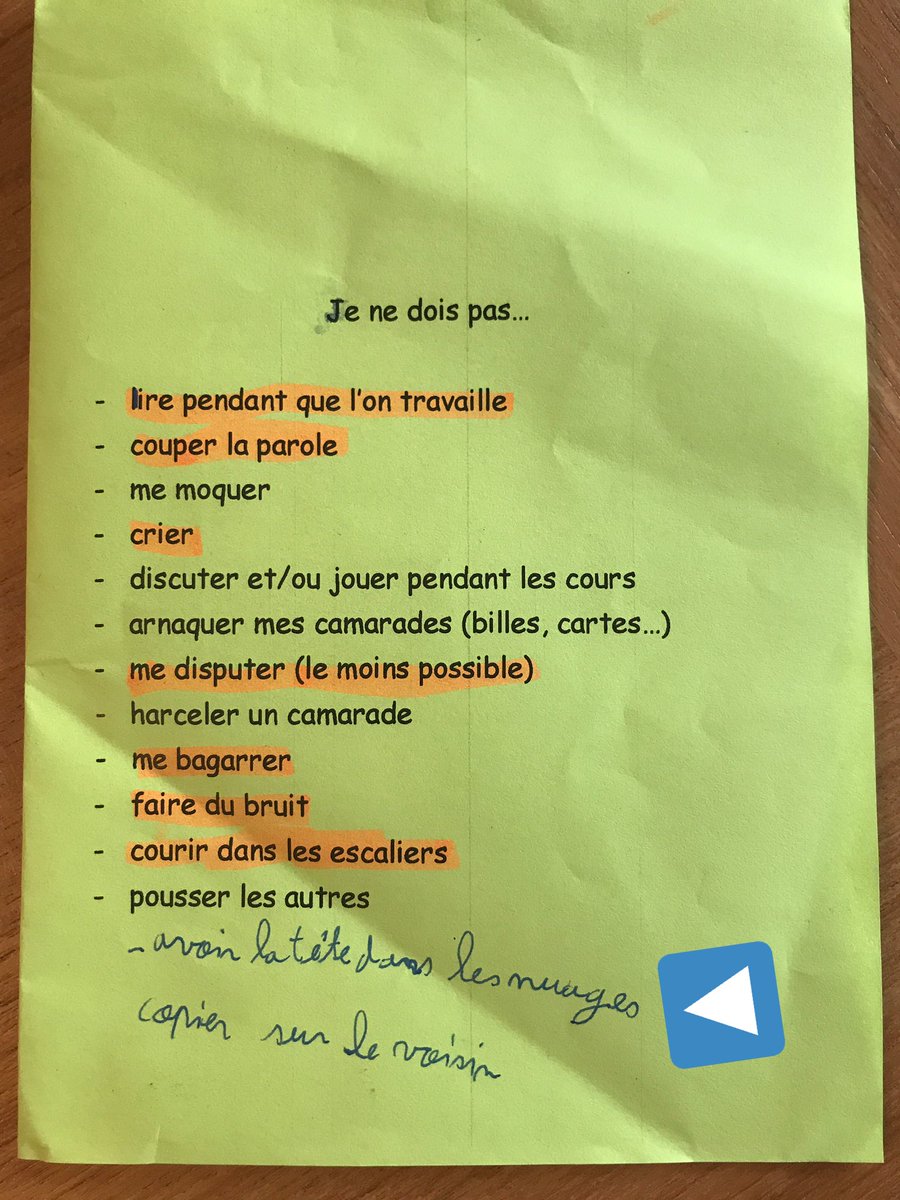 Je ne dois pas...
- lire pendant que l'on travaille
- couper la parole
- me moquer
- crier
- discuter et/ou jouer pendant les cours
- arnaquer mes camarades (billes, cartes...)
- me disputer (le moins possible)
- harceler un camarade
- me bagarrer
- faire du bruit
- courir dans les escaliers
- pousser les autres
- avoir la tête dans les nuages
copier sur le voisin